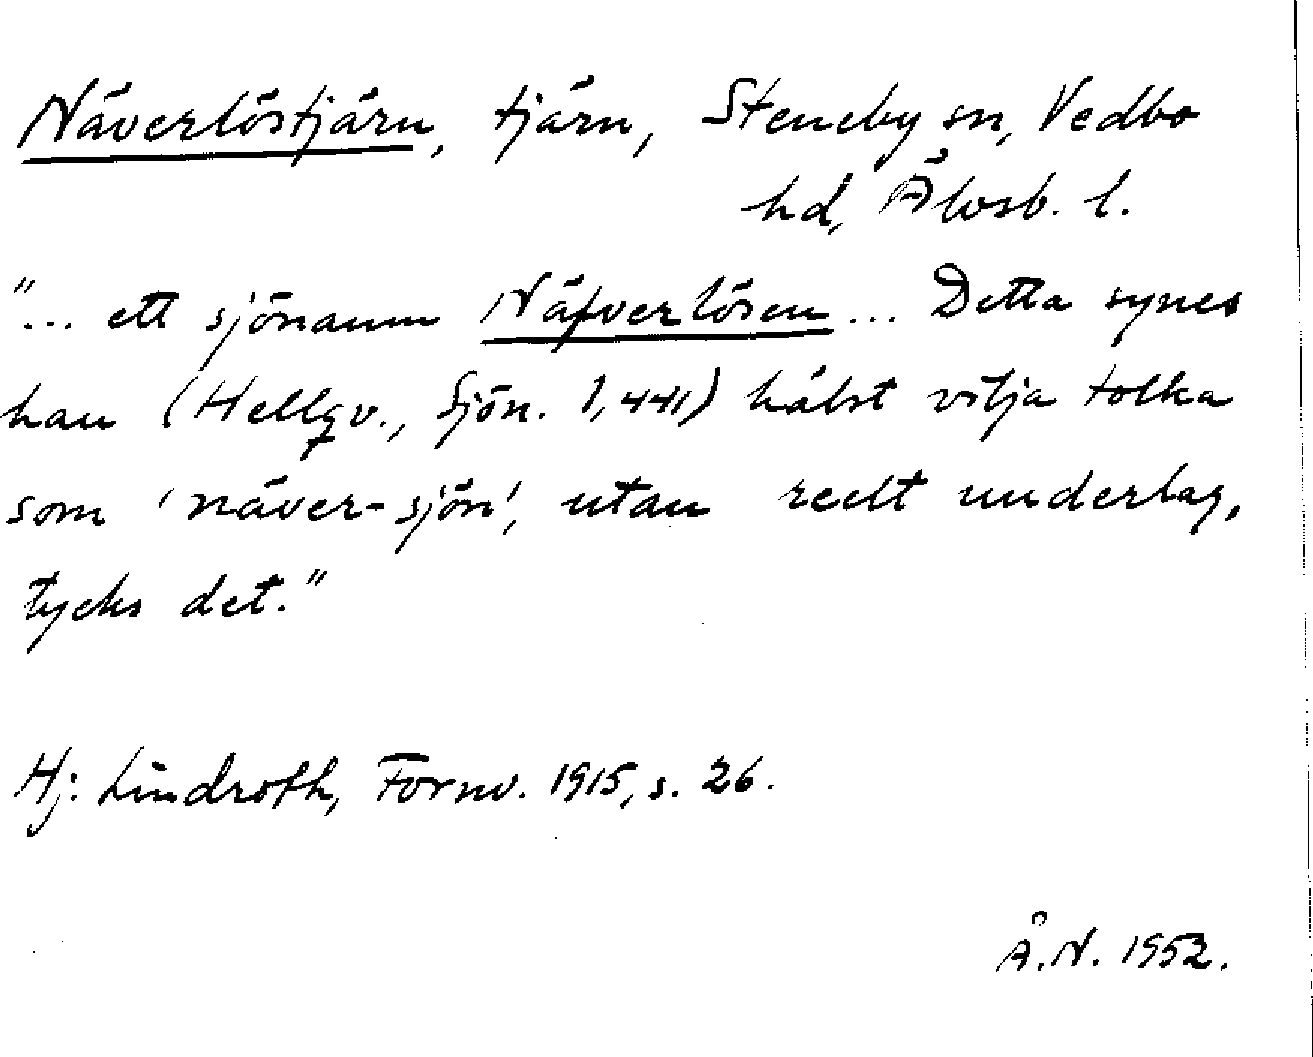 Näverlöstjärn, tjärn, Steneby sn, Vedbo
hd, Älvsb. l.
"... ett sjönamn Näfverlösen ... Detta synes
han (Hellqv., Sjön. 1, 441) hälst vilja tolka
som 'näver-sjön', utan redt underlag,
tycks det."
Hj. Lindroth, Fornv. 1915, s. 26.
Å.N. 1952.